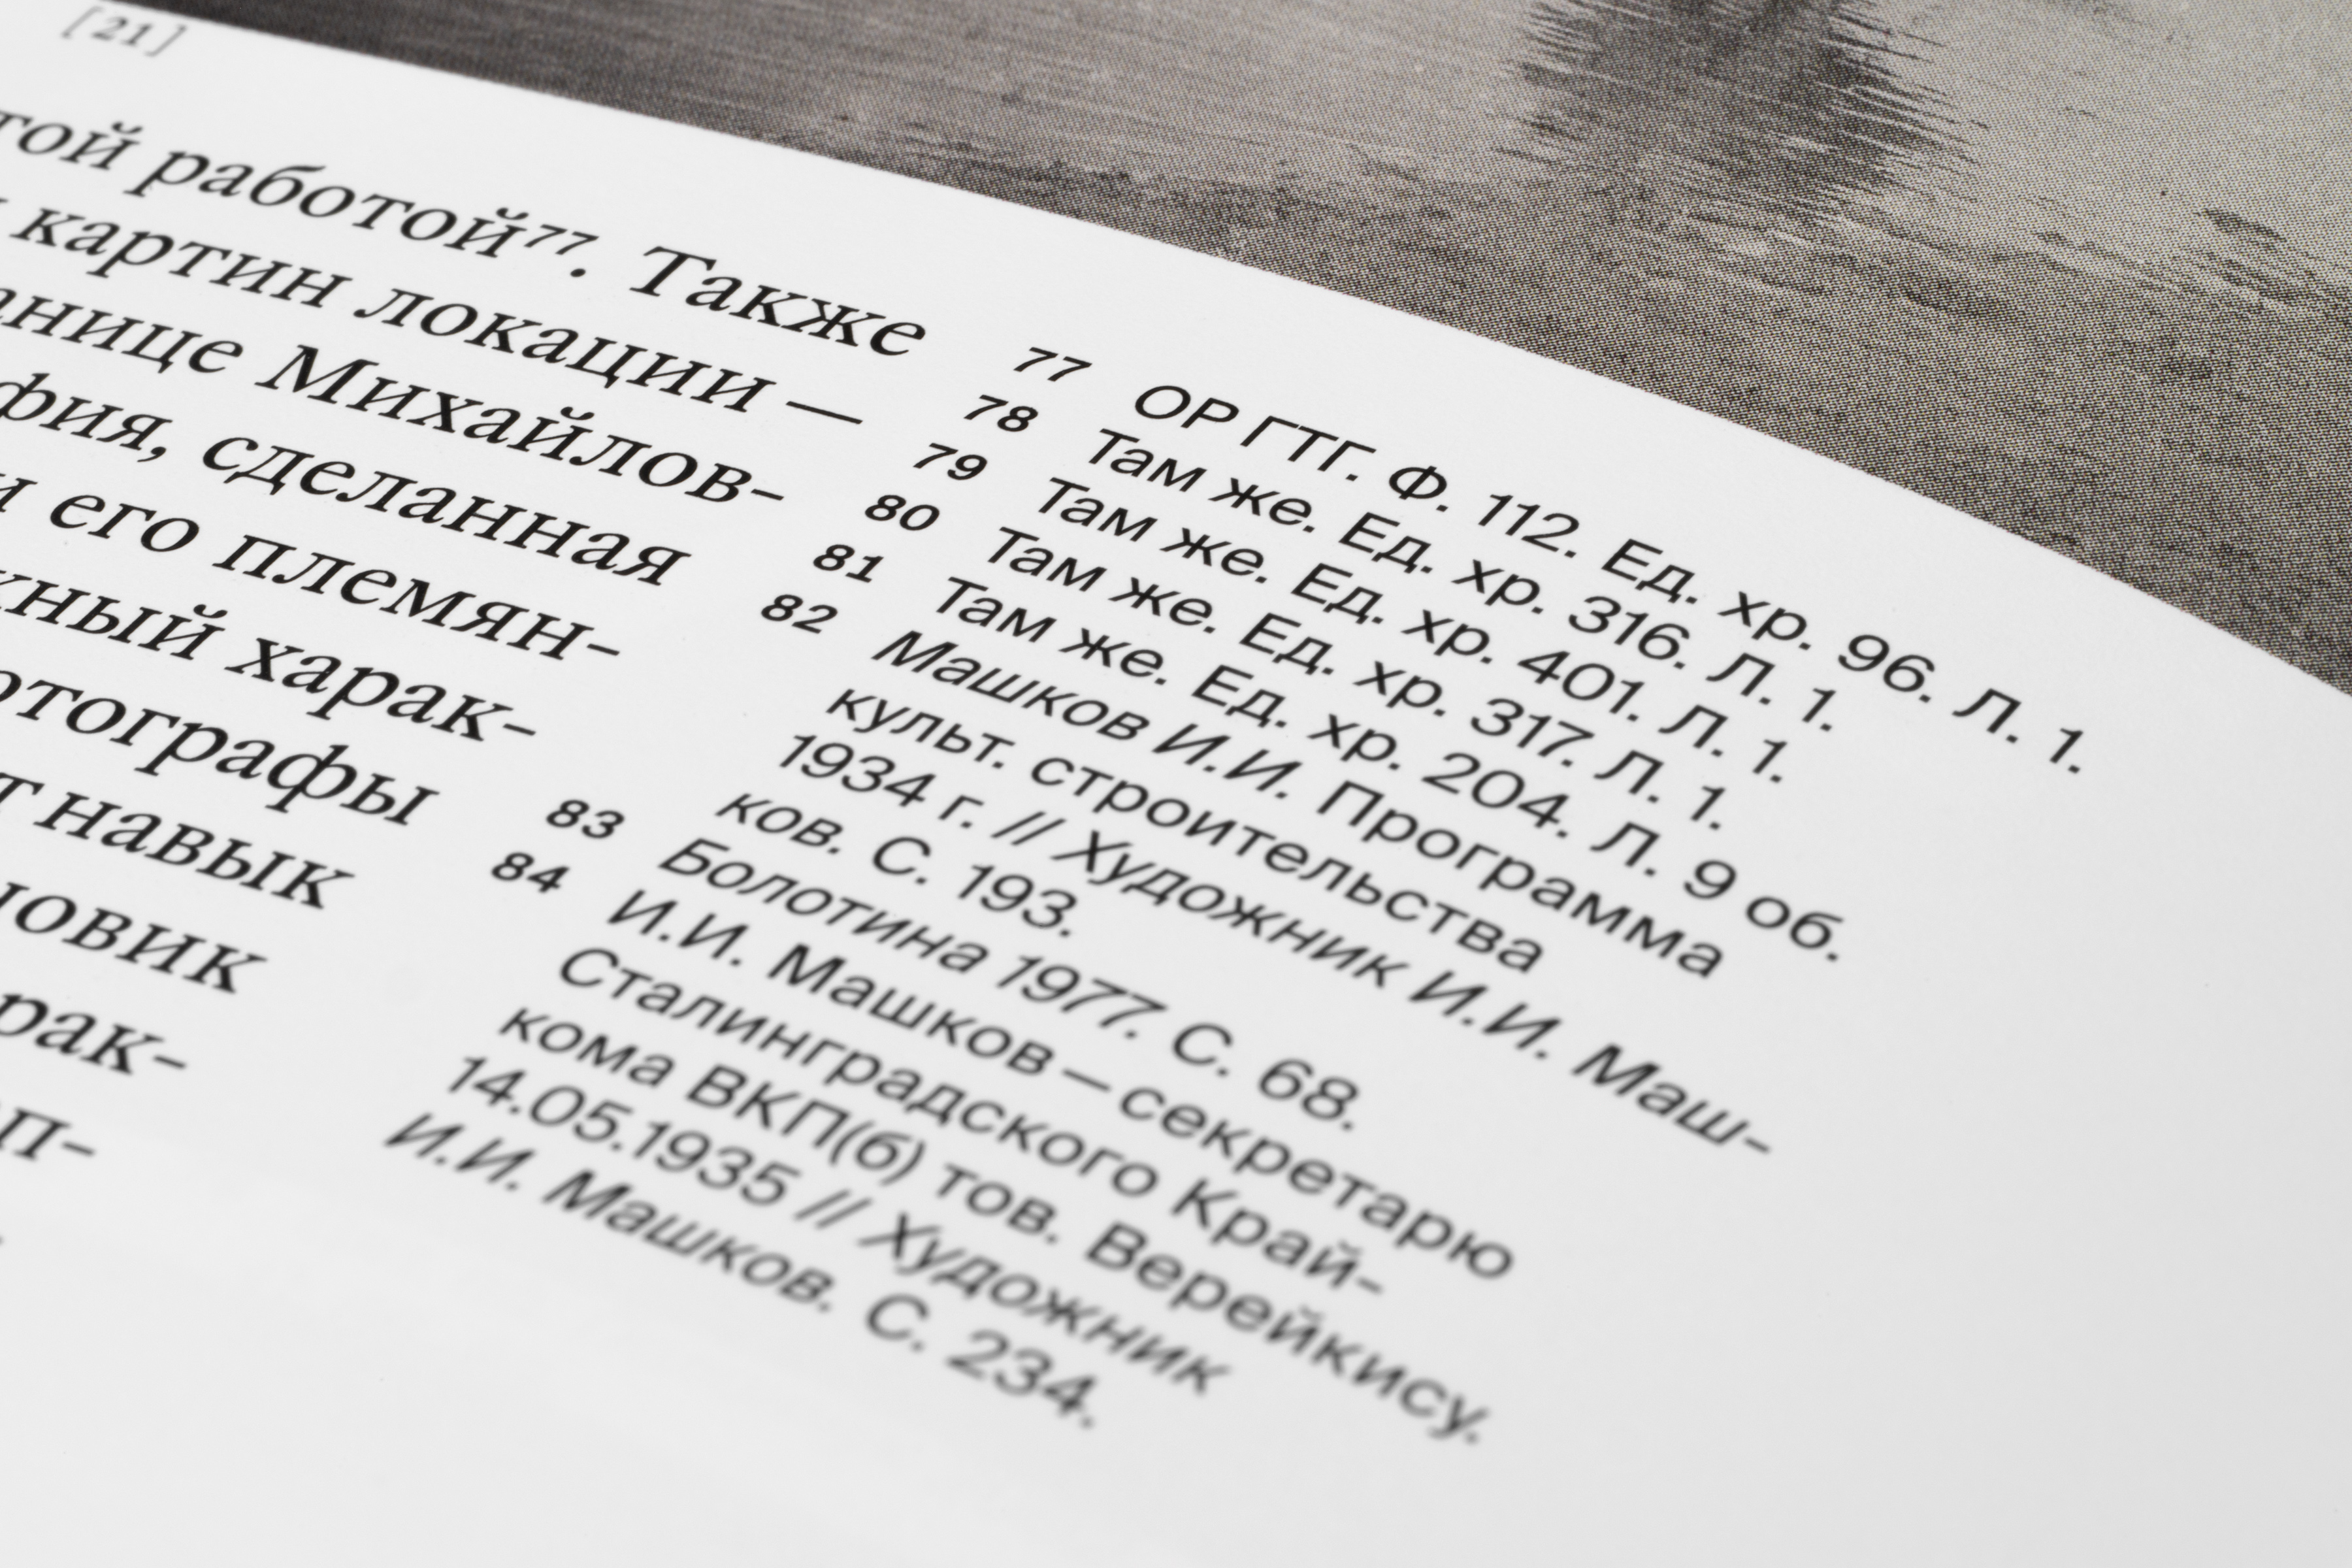 [21]
той работой⁷⁷. Также
картин локации —
Михайлов-
сделанная
его племян-
харак-
навык
77 ОР ГТГ. Ф. 112. Ед. хр. 96. Л. 1.
78 Там же. Ед. хр. 316. Л. 1.
79 Там же. Ед. хр. 401. Л. 1.
80 Там же. Ед. хр. 317. Л. 1.
81 Там же. Ед. хр. 204. Л. 9 об.
82 Машков И.И. Программа
культ. строительства
1934 г. // Художник И.И. Маш-
ков. С. 193.
83 Болотина 1977. С. 68.
84 И.И. Машков – секретарю
Сталинградского Край-
кома ВКП(б) тов. Верейкису.
14.05.1935 // Художник
И.И. Машков. С. 234.